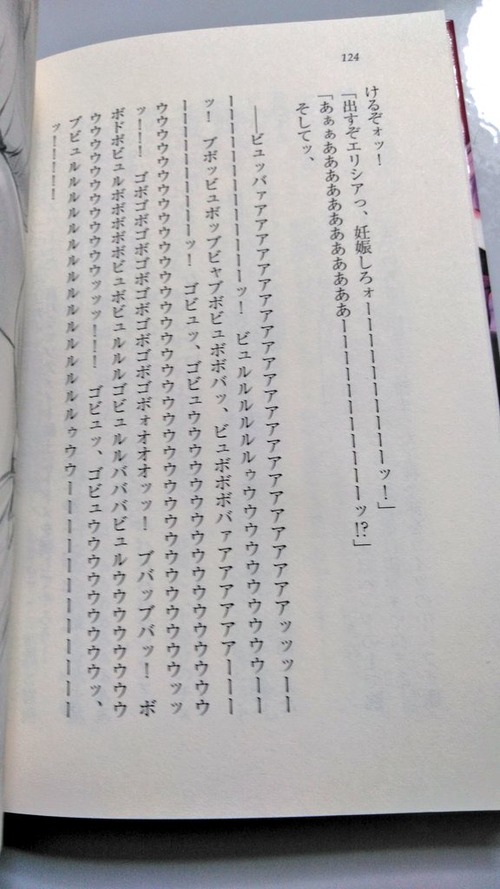 124
けるぞォッ！
「出すぞエリシアっ、妊娠しろォーーーーーーーーーーッ！」
「あぁぁあああああああああああーーーーーーーーーーーッ!?」
そしてッ、
――ビュッバァアアアアアアアアアアアアアアアアアアアアアアアアアッッッーー
ーーーーーーーーーーーーッ！　ビュルルルルルルゥウウウウウウウウウウウウーー
ッ！　ブボッビュボッブビャブボビュボボバッ、ビュボボボバァアアアアアアアーーー
ーーーーーーーーーーーッ！　ゴビュッ、ゴビュウウウウウウウウウウウウウウウウウ
ウウウウウウウウウウウウウウウウウウウウウウウウウウウウウウウウウウウウウッッ
ッ！！！　ゴボゴボゴボゴボゴボゴボゴボォオオオッッ！　ブバッブバッ！　ボ
ボドボビュルボボボボボビュボビュルルルゴビュルルバババビュルウウウウウウウウ
ウウウウウウウウウウウウッッッ！！！　ゴビュッ、ゴビュウウウウウウウウウウッ、
ブビュルルルルルルルルルルルルルルルルルルゥウウーーーーーーーーーーーーー
ッーーーーー！